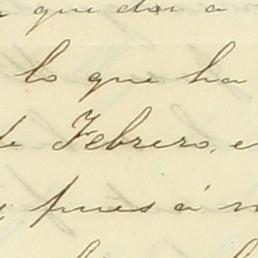 que dar a
lo que ha
de Febrero, e
pues á